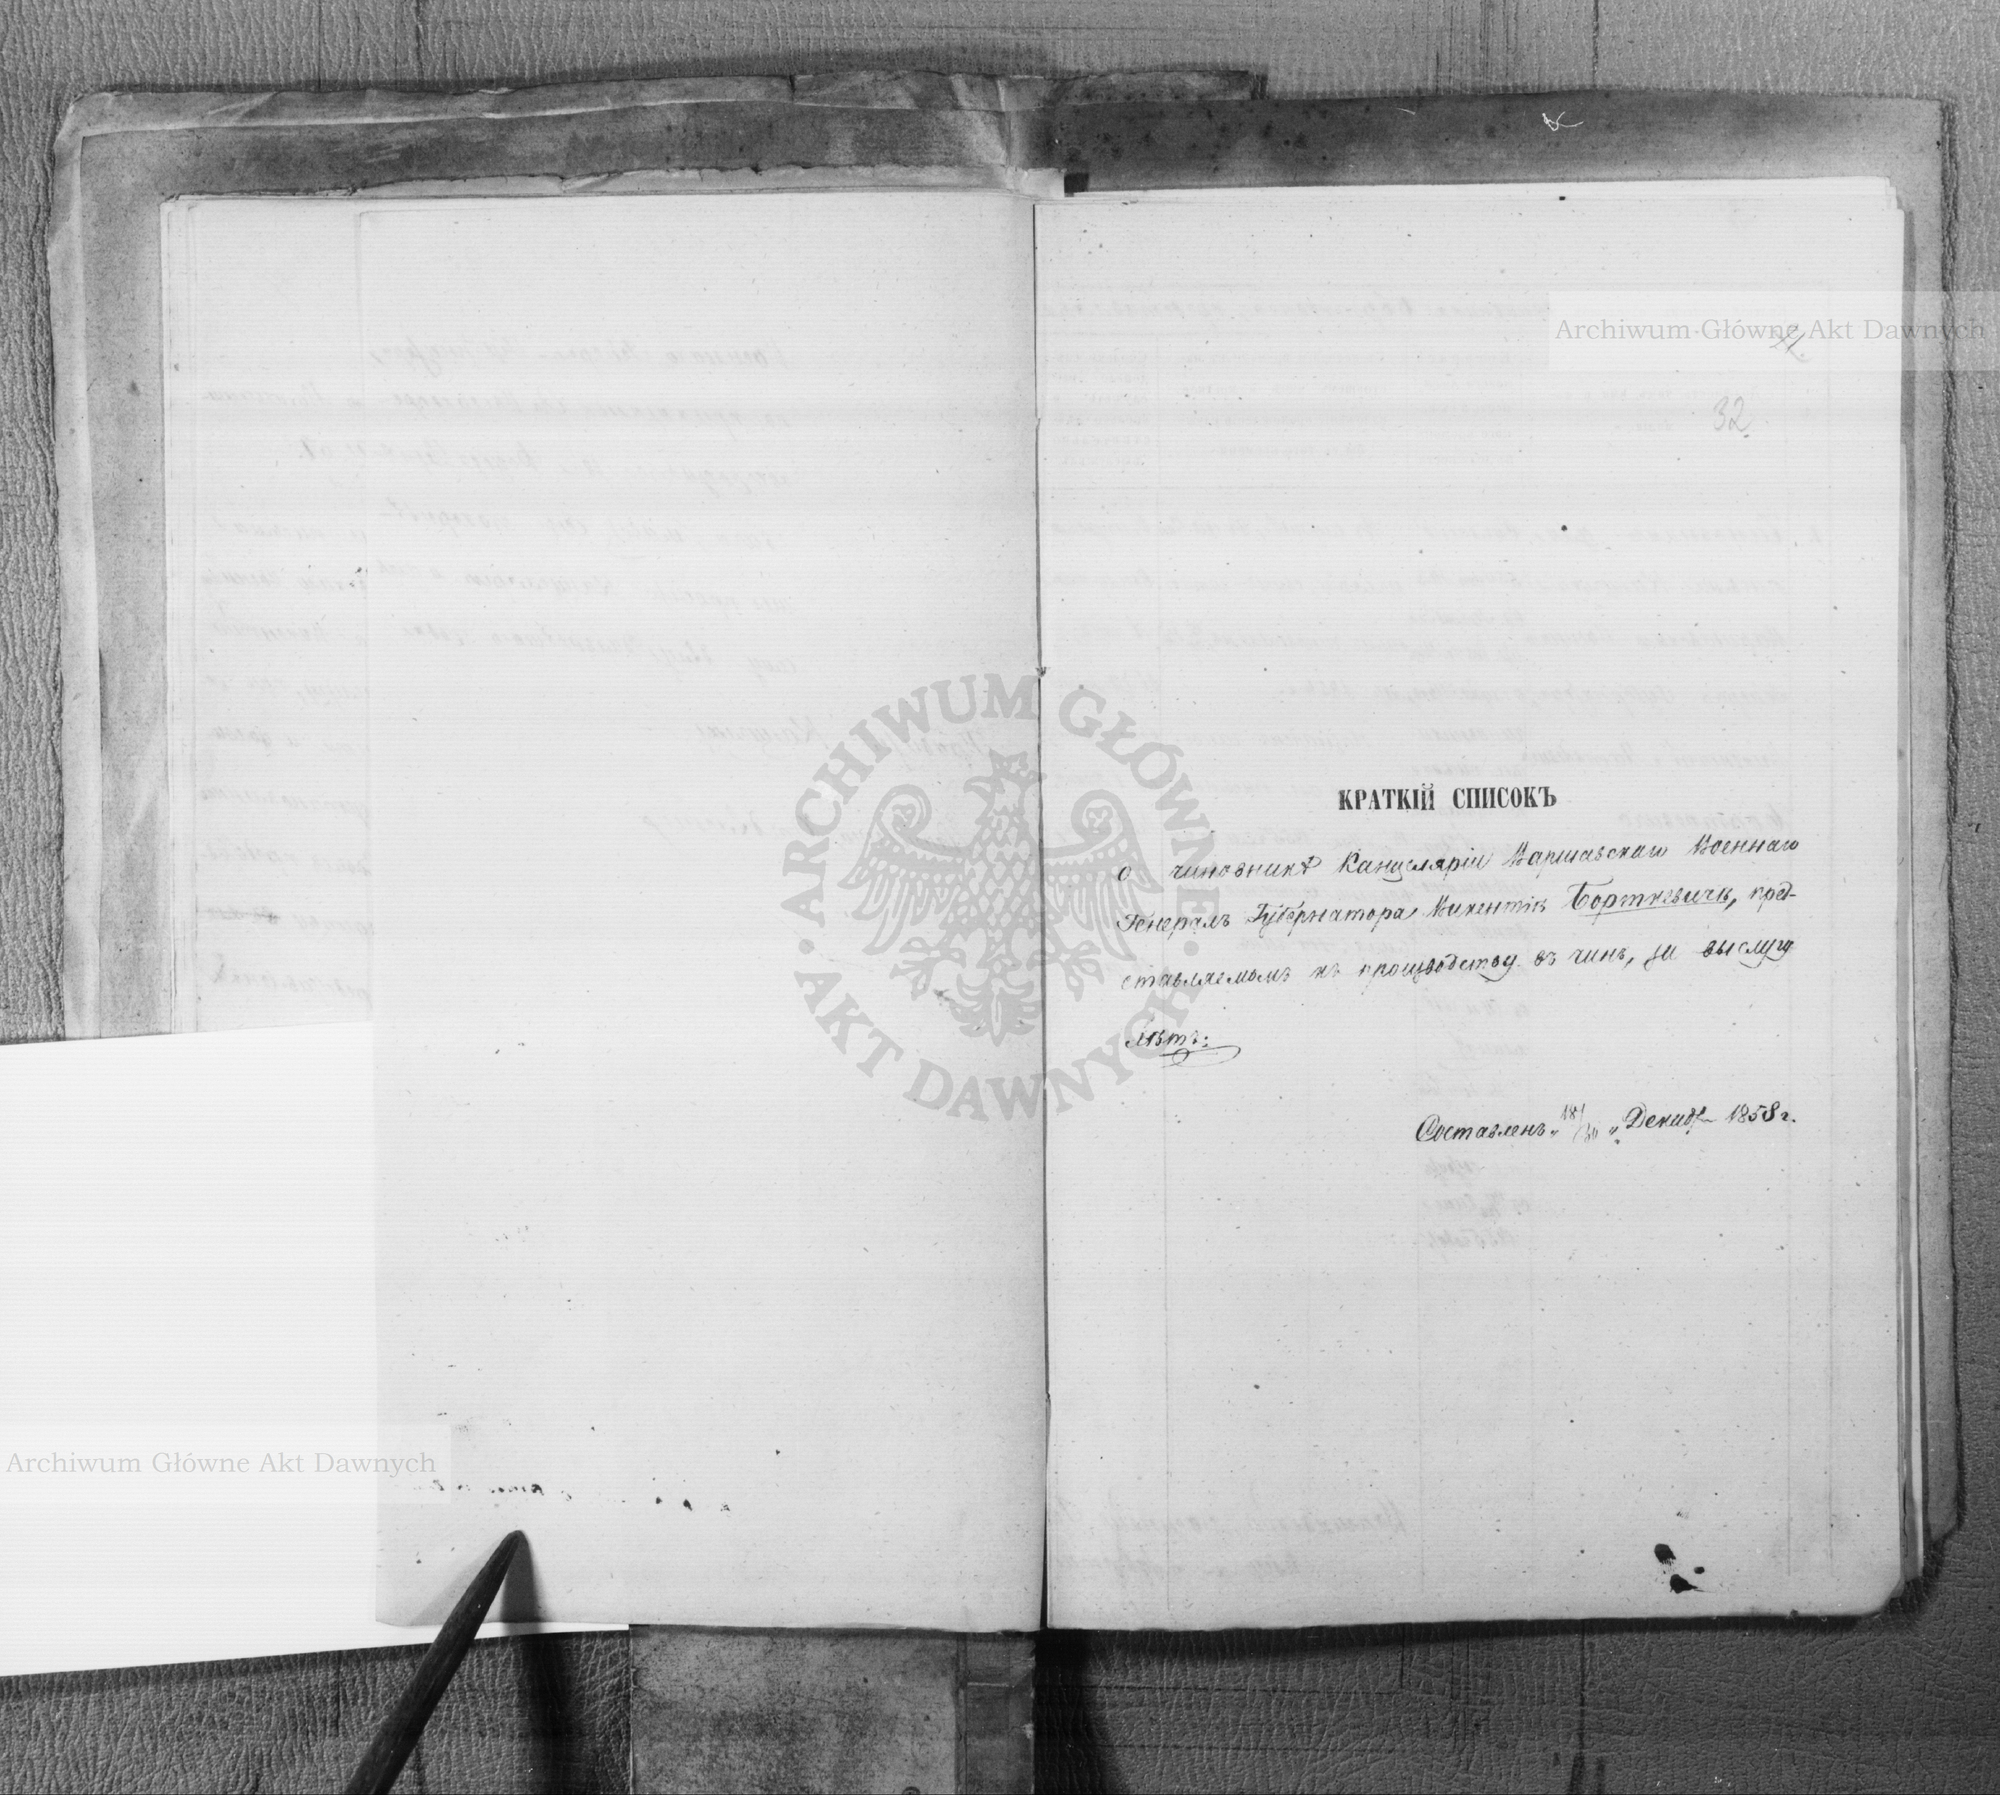 Archiwum Główne Akt Dawnych
32.
КРАТКІЙ СПИСОКЪ
о чиновникѣ Канцеляріи Варшавскаго Военнаго
Генералъ Губернатора, Викентіѣ Борткевичѣ, пред-
ставляемомъ къ производству въ чинъ, за выслугу
лѣтъ:
Составленъ „18/30" Декаб. 1858 г.
ARCHIWUM GŁÓWNE · AKT DAWNYCH ·
Archiwum Główne Akt Dawnych